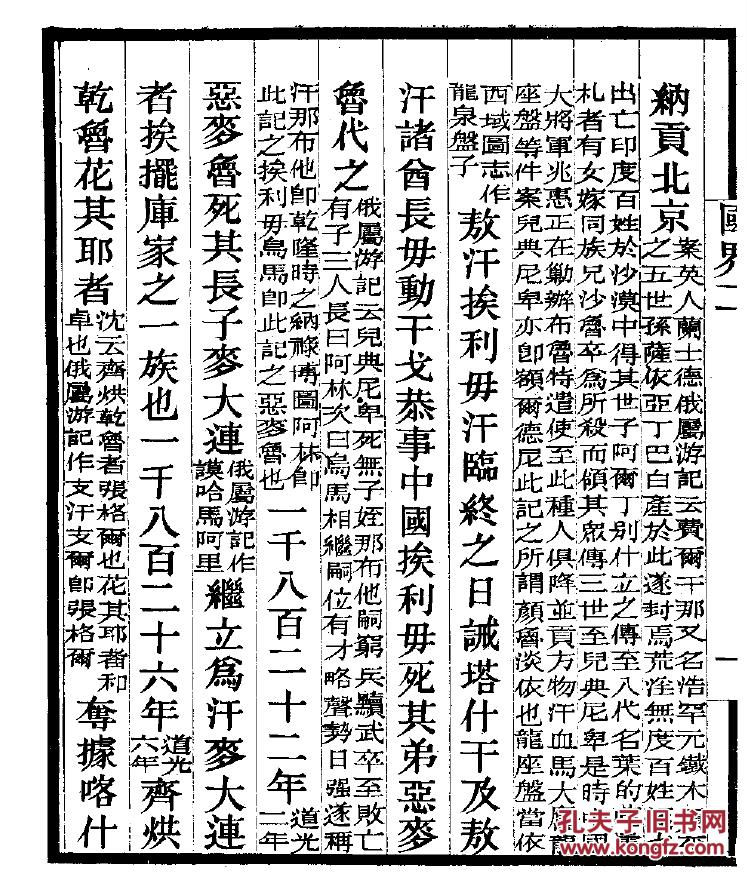 國界二
一
納貢北京
案英人蘭士德俄屬游記云費爾干那又名浩罕元鐵木
之五世孫薩依亞丁巴白產於此遂封焉荒淫無度百姓
出亡印度百姓於沙漠中得其世子阿爾丁別什立之傳至八代名葉的
札者有女嫁同族兄沙魯卒爲所殺而領其眾傳三世至兒典尼卑是時中國
大將軍兆惠正在勦辦布魯特遣使至此種人俱降並貢方物汗血馬大
座盤等件案兒典尼卑亦卽額爾德尼此記之所謂顏魯淡依也龍座盤當依
西域圖志作
龍泉盤子
敖汗挨利毋汗臨終之日誡塔什干及敖
汗諸酋長毋動干戈恭事中國挨利毋死其弟惡麥
魯代之
俄屬游記云兒典尼卑死無子姪那布他嗣窮兵黷武卒至敗亡
有子三人長曰阿林次曰烏馬相繼嗣位有才略聲勢日强遂稱
汗那布他卽乾隆時之納祿博圖阿林卽
此記之挨利毋烏馬卽此記之惡麥魯也
一千八百二十二年
道光
二年
惡麥魯死其長子麥大連
俄屬游記作
謨哈馬阿里
繼立爲汗麥大連
者挨擺庫家之一族也一千八百二十六年
道光
六年
齊烘
乾魯花其耶者
沈云齊烘乾魯者張格爾也花其耶者和
卓也俄屬游記作支汗支爾卽張格爾
奪據喀什
孔夫子旧书网
www.kongfz.com